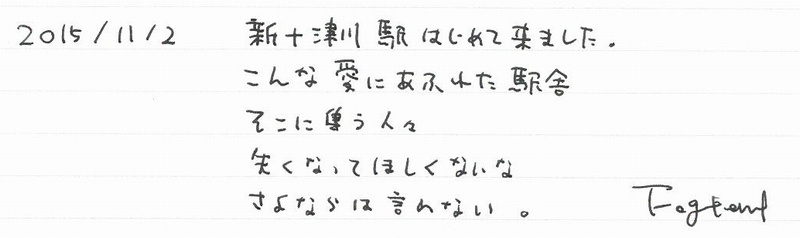 2015/11/2 新十津川駅はじめて来ました。
こんな愛にあふれた駅舎
そこに集う人々
失くなってほしくないな
さよならは言わない。